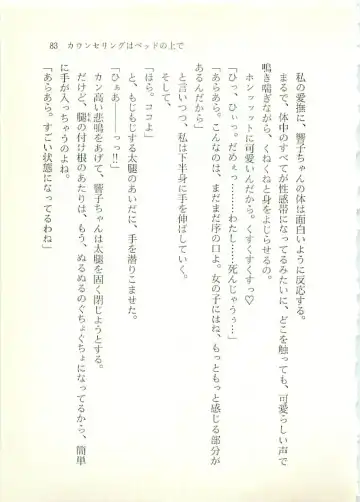 83 カウンセリングはベッドの上で
私の愛撫に、響子ちゃんの体は面白いように反応する。
まるで、体中のすべてが性感帯になってるみたいに、どこを触っても、可愛らしい声で
鳴き喘ぎながら、くねくねと身をよじらせるの。
ホンットットに可愛いんだから。くすくすくすっ♡
「ひっ、ひぃっ。だめぇっ………わたし……死んじゃうぅ…」
「あらあら。こんなのは、まだまだ序の口よ。女の子にはね、もっともっと感じる部分が
あるんだから」
と言いつつ、私は下半身に手を伸ばしていく。
そして、
「ほら。ココよ」
と、もじもじする太腿のあいだに、手を潜りこませた。
「ひぁあ――っっ!!」
カン高い悲鳴をあげて、響子ちゃんは太腿を固く閉じようとする。
だけど、腿の付け根のあたりは、もう、ぬるぬるのぐちょぐちょになってるから、簡単
に手が入っちゃうのよね。
「あらあら。すごい状態になってるわね」